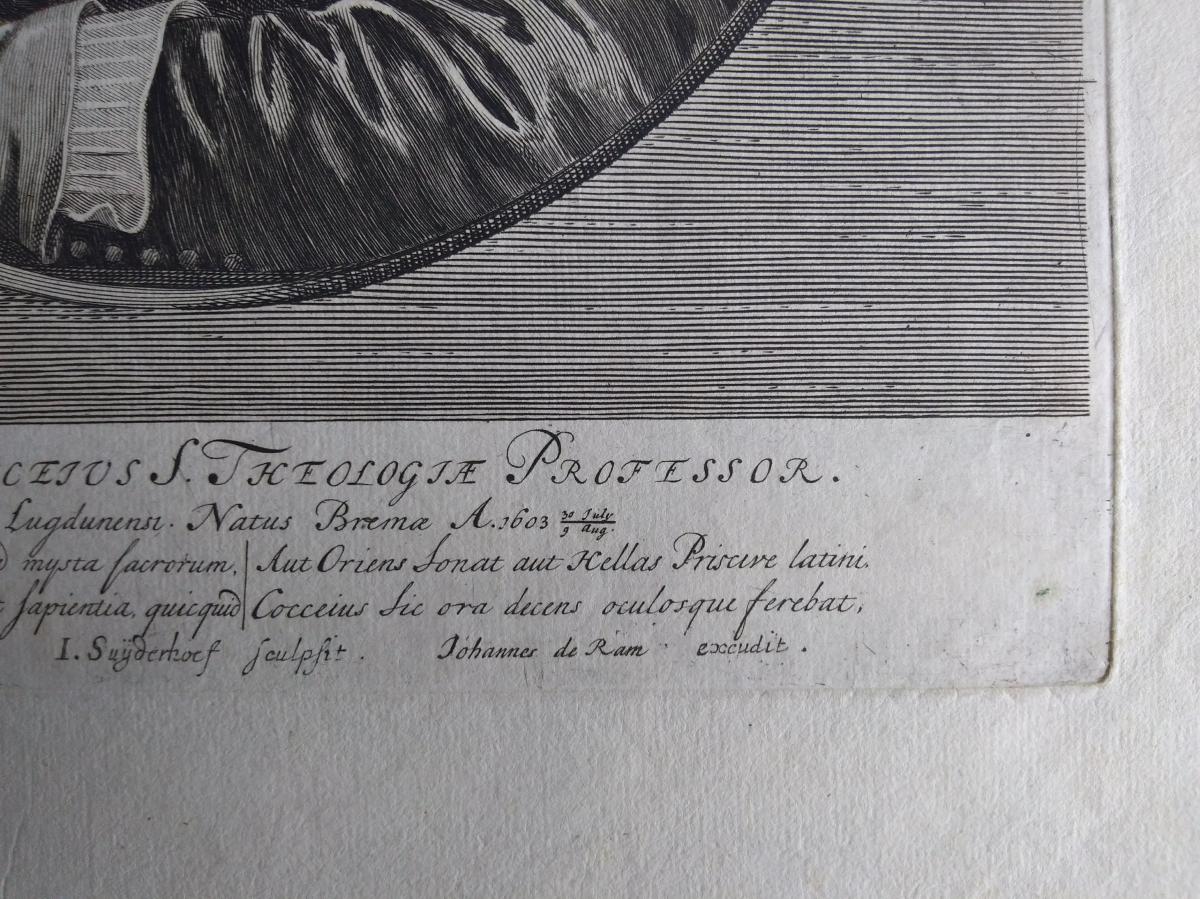 CEIUS S. THEOLOGIÆ PROFESSOR.
Lugdunensi. Natus Bremæ A. 1603 30 July / 9 Aug.
mysta sacrorum, Aut Oriens Sonat aut Hellas Priscive latini,
sapientia, quicquid Cocceius Sic ora decens oculosque ferebat,
I. Suÿderhoef sculpsit. Johannes de Ram excudit.